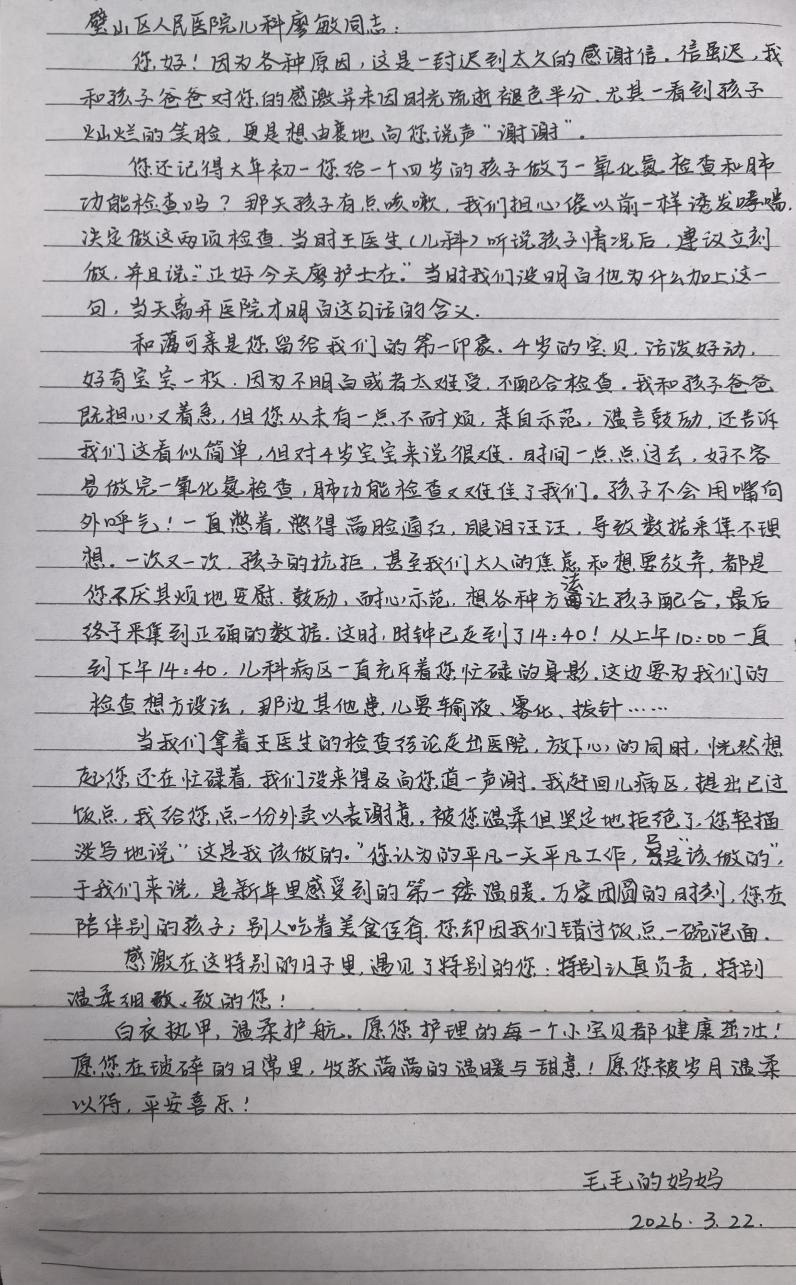 璧山区人民医院儿科廖敏同志：
您好！因为各种原因，这是一封迟到太久的感谢信。信虽迟，我
和孩子爸爸对您的感激并未因时光流逝褪色半分，尤其一看到孩子
灿烂的笑脸，更是想由衷地向您说声“谢谢”。
您还记得大年初一您给一个四岁的孩子做了一氧化氮检查和肺
功能检查吗？那天孩子有点咳嗽，我们担心像以前一样诱发哮喘，
决定做这两项检查。当时王医生（儿科）听说孩子情况后，建议立刻
做，并且说：“正好今天廖护士在。”当时我们没明白他为什么加上这一
句，当天离开医院才明白这句话的含义。
和蔼可亲是您留给我们的第一印象。4岁的宝贝，活泼好动，
好奇宝宝一枚，因为不明白或者太难受，不配合检查。我和孩子爸爸
既担心又着急，但您从未有一点不耐烦，亲自示范，温言鼓励，还告诉
我们这看似简单，但对4岁宝宝来说很难。时间一点点过去，好不容
易做完一氧化氮检查，肺功能检查又难住了我们。孩子不会用嘴向
外呼气！一直憋着，憋得满脸通红，眼泪汪汪，导致数据采集不理
想。一次又一次，孩子的抗拒，甚至我们大人的焦虑和想要放弃，都是
您不厌其烦地安慰、鼓励、耐心示范，想各种方法让孩子配合，最后
终于采集到正确的数据。这时，时钟已走到了14:40！从上午10:00一直
到下午14:40，儿科病区一直充斥着您忙碌的身影。这边要为我们的
检查想方设法，那边其他患儿要输液、雾化、拔针……
当我们拿着王医生的检查结论走出医院，放下心的同时，恍然想
起您还在忙碌着，我们没来得及向您道一声谢。我赶回儿病区，提出已过
饭点，我给您点一份外卖以表谢意，被您温柔但坚定地拒绝了，您轻描
淡写地说“这是我该做的。”您认为的平凡一天平凡工作，只是“该做的”，
于我们来说，是新年里感受到的第一缕温暖。万家团圆的时刻，您在
陪伴别的孩子；别人吃着美食佳肴，您却因我们错过饭点，一碗泡面。
感激在这特别的日子里，遇见了特别的您：特别认真负责，特别
温柔细致的您！
白衣执甲，温柔护航。愿您护理的每一个小宝贝都健康茁壮！
愿您在琐碎的日常里，收获满满的温暖与甜意！愿您被岁月温柔
以待，平安喜乐！
毛毛的妈妈
2026.3.22.